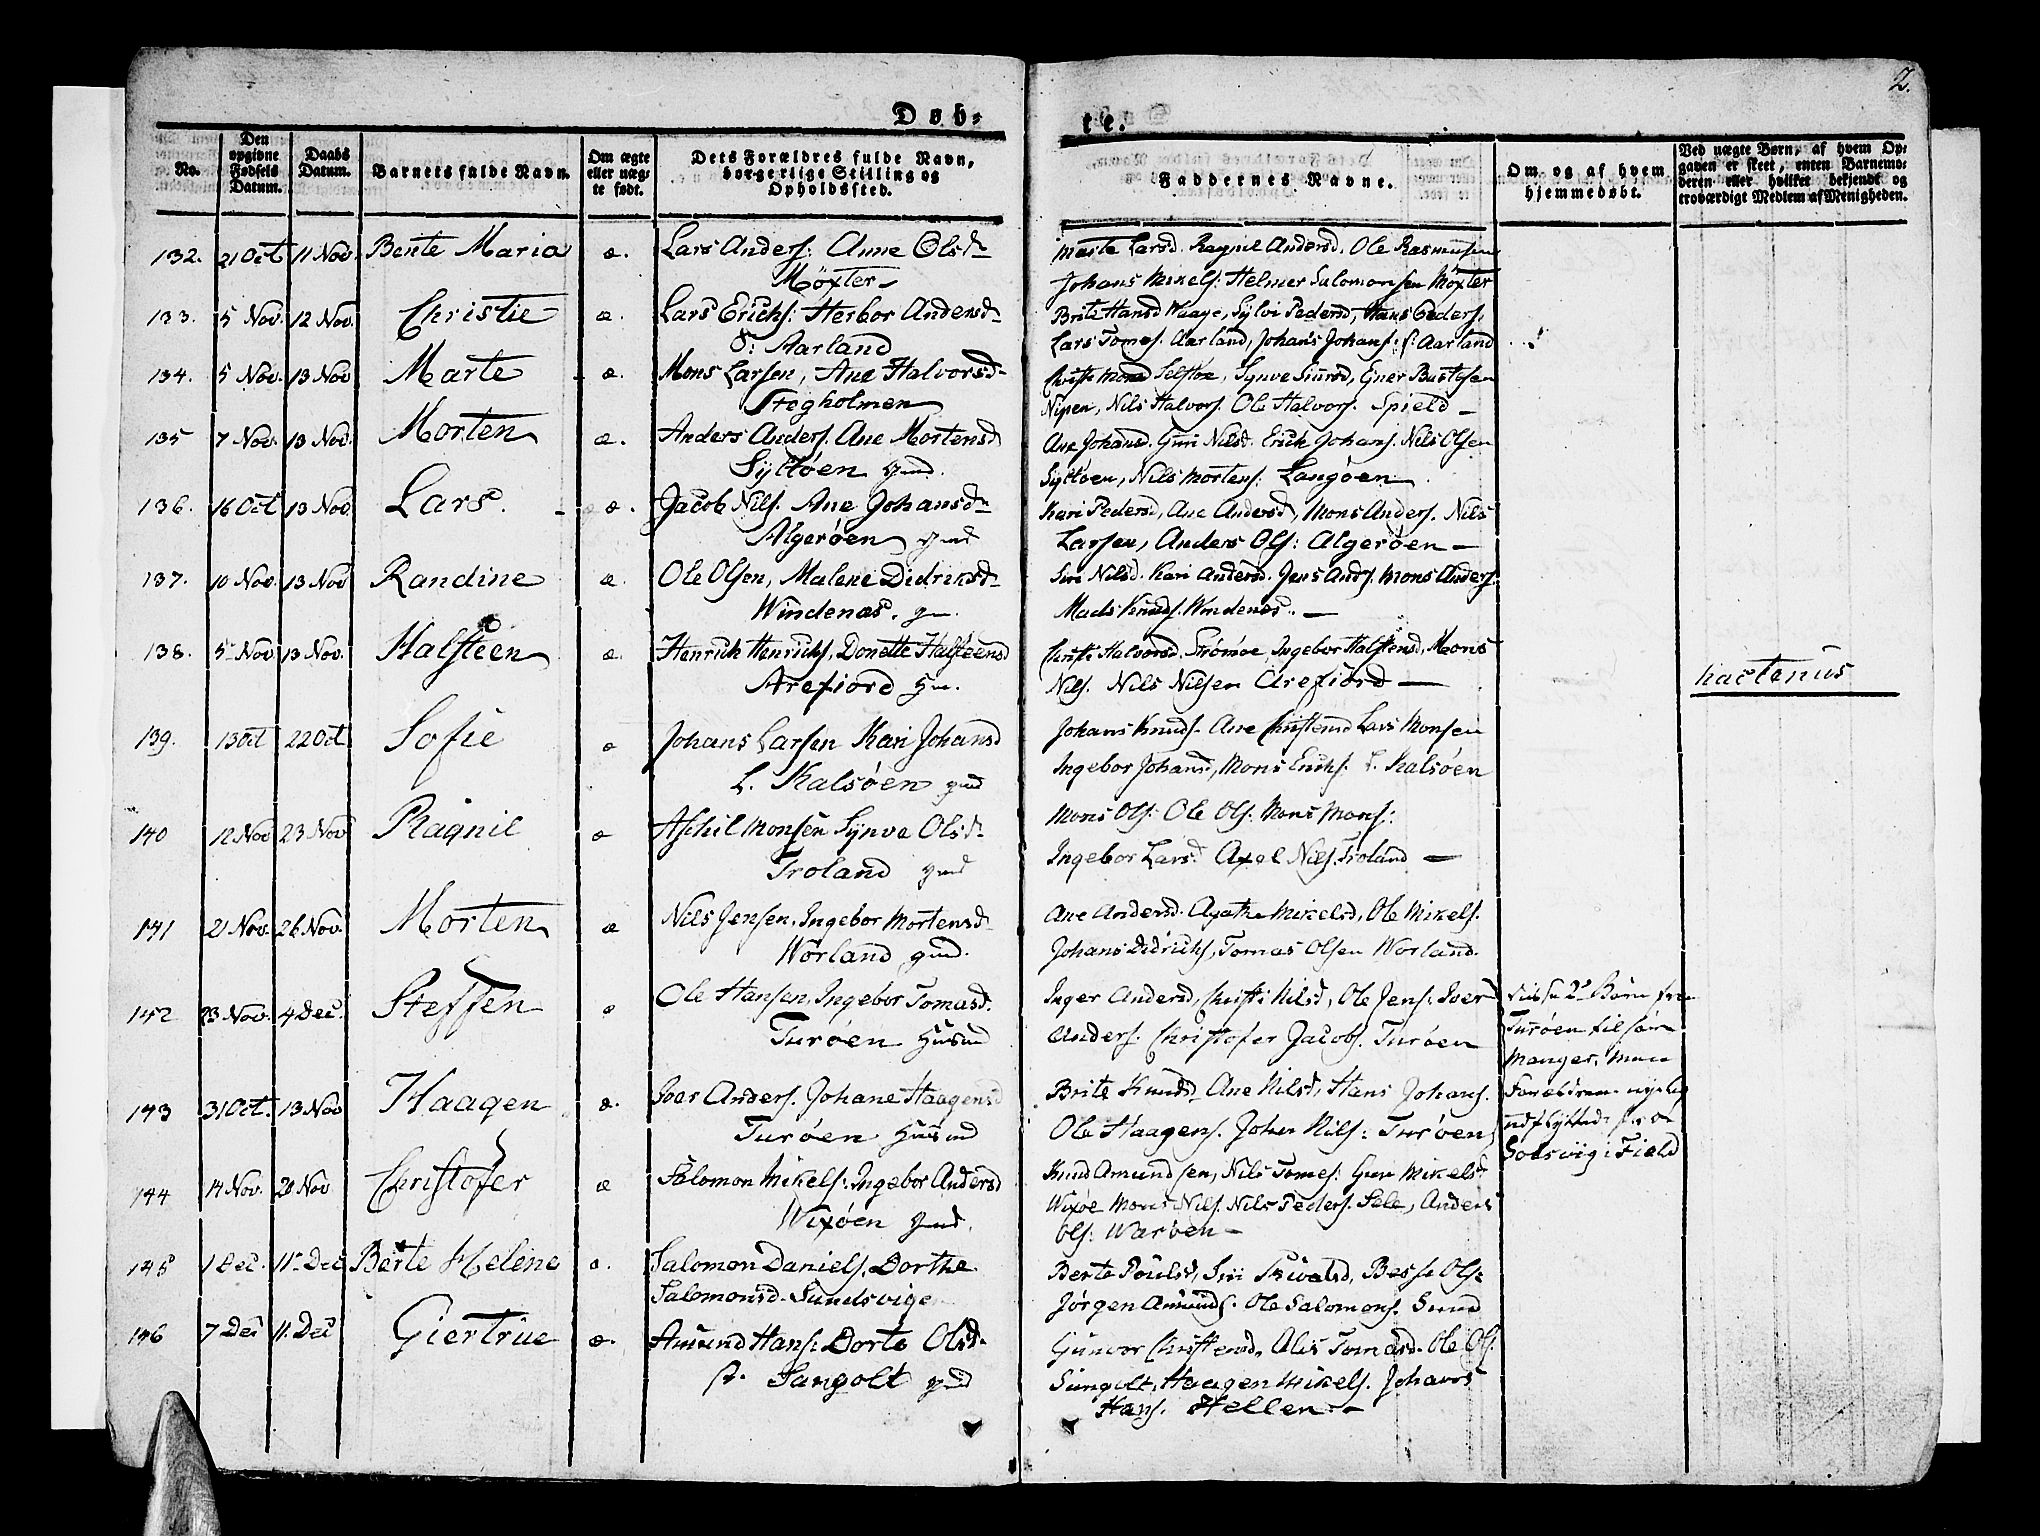 2.
Døb- te.
No. Den opgivne Fødsels Datum. Daabs Datum. Barnets fulde Navn. Om ægte eller uægte født. Dets Forældres fulde Navn, borgerlige Stilling og Opholdssted. Faddernes Navne. Om og af hvem hjemmedøbt. Ved uægte Børn, af hvem Opgaven er skeet, enten Barnemoderen eller hvilket bekjendt og troværdigt Medlem af Menigheden.
132. 21 Oct 11 Nov Bente Maria æ. Lars Anders: Anne Olsd. Marte Larsd. Ragnil Andersd. Ole Rasmusen
Møxter Johans Mikels: Helmer Salomonsen Møxter
133. 5 Nov. 12 Nov. Christie æ. Lars Erichs: Herbor Andersd. Brite Hansd Waage, Sylvi Pedersd, Hans Peders.
S: Aarland Lars Tomes. Aarland, Johans Johans: S: Aarland
134. 5 Nov. 13 Nov Marte æ. Mons Larsen, Ane Halvorsd. Christi Monsd Selstøe, Synve Siursd, Einer
Stegholmen Nipen, Nils Halvors. Ole Halvors. Spield
135 7 Nov. 13 Nov. Morten æ. Anders Anders. Ane Mortensd Ane Johansd. Guri Nilsd. Erich Johans. Nils Olsen
Syltøen gmd. Syltøen, Nils Mortens: Langøen
136. 16 Oct 13 Nov. Lars. æ. Jacob Nils. Ane Johansd. Kari Pedersd, Ane Andersd, Mons Anders. Nils
Algerøen gmd Larsen, Anders Ols: Algerøen
137. 10 Nov. 13 Nov Randine æ. Ole Olsen, Malene Didriksd. Siri Nilsd. Kari Andersd. Jens Ands. Mons Anders.
Windenæs. gm. Mads Knuds. Windenæs.
138. 5 Nov 13 Nov. Halsteen æ. Henrich Henrichs, Donette Halsteensd Christi Halvorsd. Strømøe, Ingebor Halstensd, Mons
Arefiord Nils. Nils Nilsen Arefiord hactenus
139. 13 Oct 22 Oct Sofie æ Johans Larsen Kari Johansd Johans Knuds. Ane Christensd Lars Monsen
L. Kalsøen gmd Ingebor Johansd, Mons Erichs. L. Kalsøen
140 12 Nov 23 Nov Ragnil æ Aschil Monsen Synva Olsd. Mons Ols: Ole Ols. Mons Mons:
Troland gmd Ingebor Larsd Axel Nils. Troland
141 21 Nov. 26 Nov. Morten æ Nils Jensen, Ingebor Mortensd. Ane Andersd. Agathe Mikelsd, Ole Mikels.
Worland gmd. Johans Didrichs, Tomas Olsen Worland.
142 23 Nov. 4 Dec. Steffen æ Ole Hansen, Ingebor Tomasd. Inger Andersd, Christi Nilsd, Ole Jens: Iver disse 2de Børn fra
Turøen Husmd Anders. Christofer Jacobs. Turøen Turøen til
Manger, men
143 31 Oct. 13 Nov Haagen æ. Iver Anders. Johane Haagensd Brite Knudsd, Ane Nilsd, Hans Johans. Forældrene nylig
Turøen Husmd Ole Haagens. Johan Nils: Turøen udflyttede fra
Solsvig i Field
144 14 Nov. 20 Nov Christofer æ Salomon Mikels: Ingebor Andersd Knud Amundsen, Nils Tomes: Guri Mikelsd
Wixøen gmd. Wixøe Mons Nils. Nils Peders. Sele, Anders
Ols: Warøen
145 1 Dec. 11 Dec Berte Helene æ. Salomon Daniels. Dorthe Berte Poulsd, Siri Besse Ols:
Salomonsd. Sundsvigen Jørgen Amunds: Ole Salomons. Sund
146 7 Dec 11 Dec Giertrue æ. Amund Hans: Dorte Olsd. Gunvor Christensd, Alis Tomasd. Ole Ols.
Sangolt gmd Sungolt, Haagen Mikels. Johans
Hans. Hellen